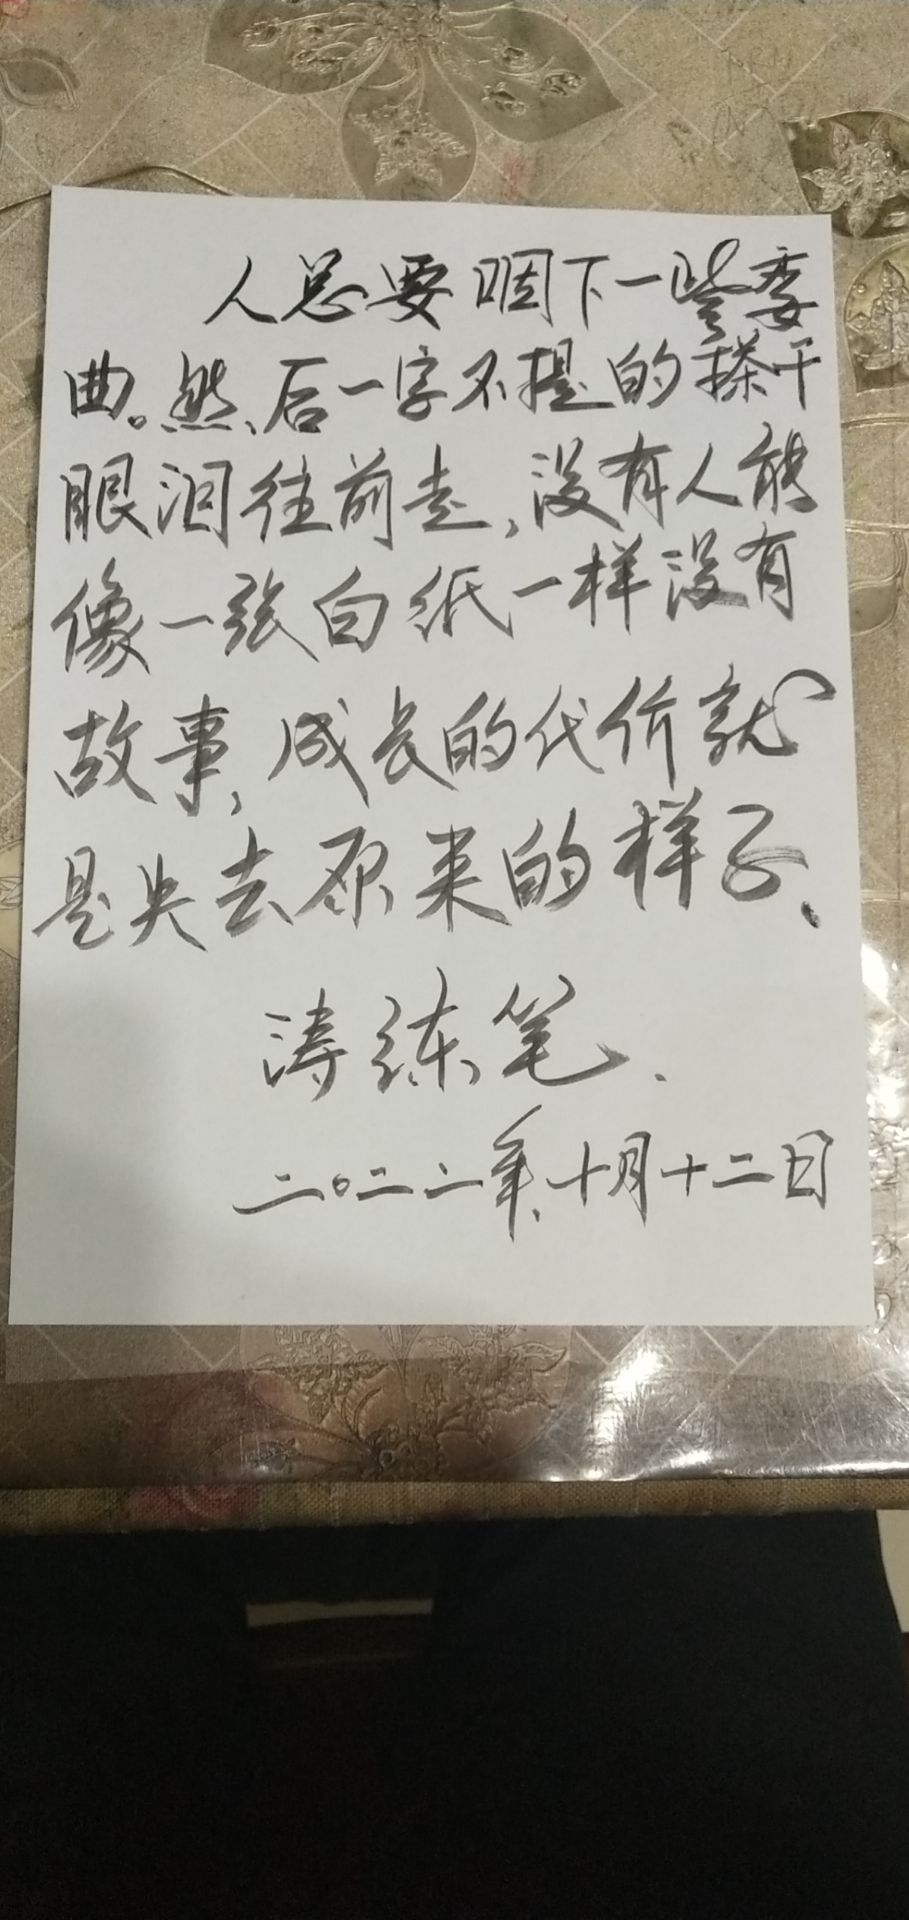 人总要咽下一些委
曲。然后一字不提的搽干
眼泪往前走,没有人能
像一张白纸一样没有
故事,成长的代价就
是失去原来的样子、
涛练笔.
二〇二二年.十月十二日